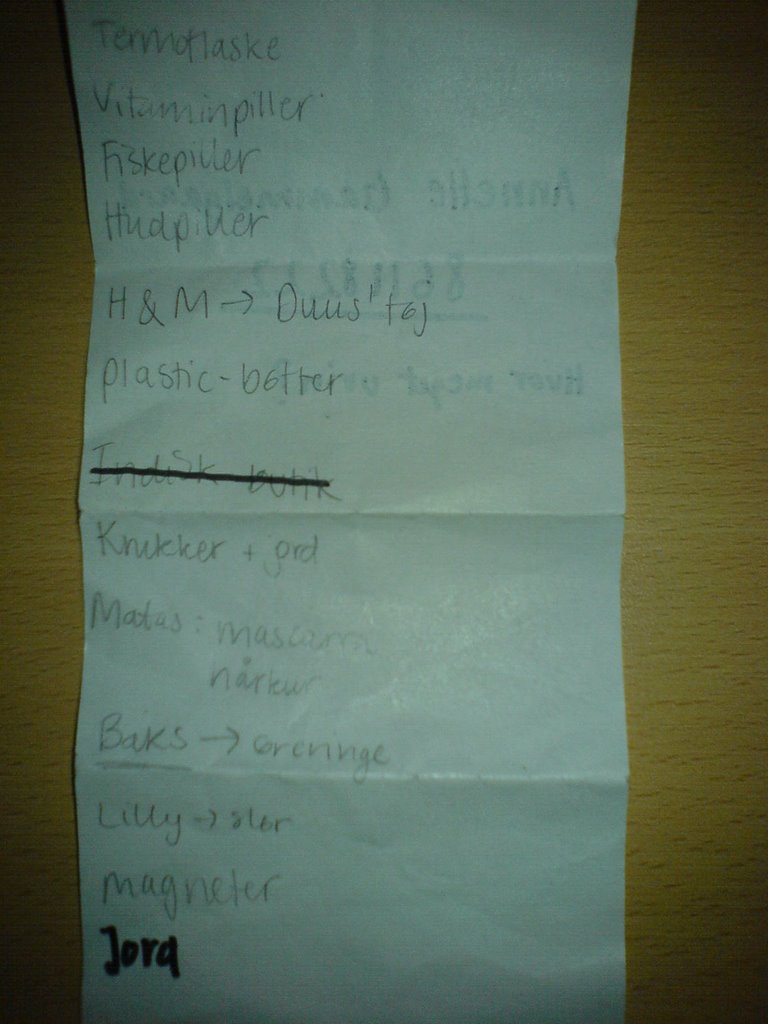 Termoflaske
Vitaminpiller
Fiskepiller
Hudpiller
H & M → Duus' tøj
plastic-bøtter
Indisk butik
Krukker + jord
Matas: mascara
hårkur
Baks → øreringe
Lilly → slør
magneter
Jord
Annette
Hvor meget